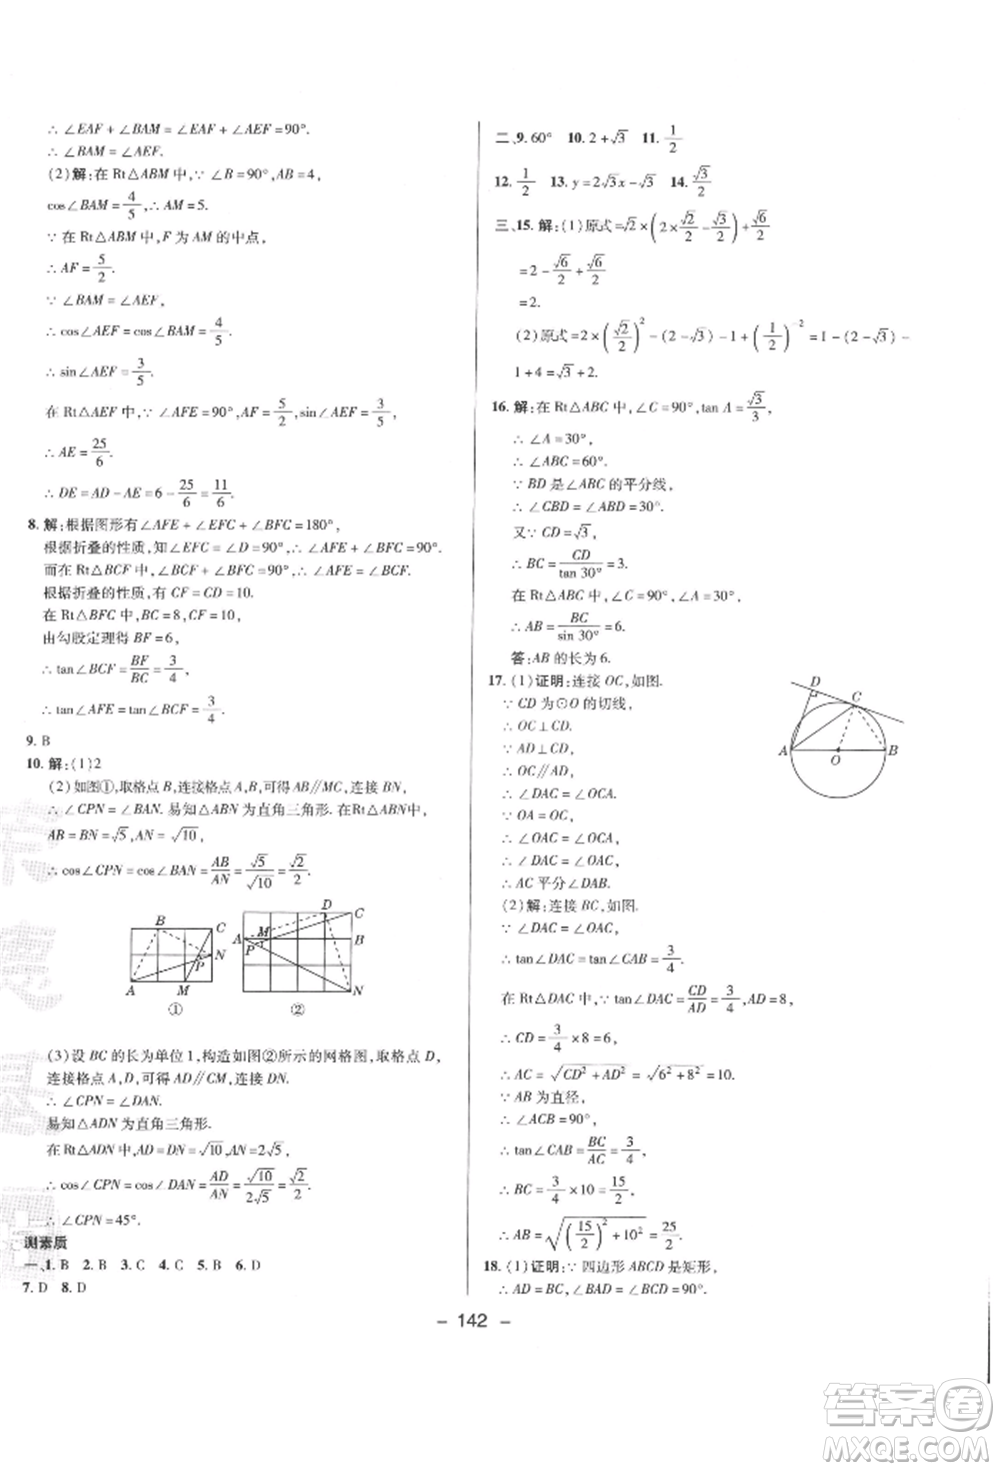 ∴ ∠EAF + ∠BAM = ∠EAF + ∠AEF = 90°.
∴ ∠BAM = ∠AEF.
(2)解:在 Rt△ABM 中,∵ ∠B = 90°,AB = 4,
cos∠BAM = 4/5,∴ AM = 5.
∵ 在 Rt△ABM 中,F 为 AM 的中点,
∴ AF = 5/2.
∵ ∠BAM = ∠AEF,
∴ cos∠AEF = cos∠BAM = 4/5.
∴ sin∠AEF = 3/5.
在 Rt△AEF 中,∵ ∠AFE = 90°,AF = 5/2,sin∠AEF = 3/5,
∴ AE = 25/6.
∴ DE = AD - AE = 6 - 25/6 = 11/6.
8. 解:根据图形有∠AFE + ∠EFC + ∠BFC = 180°,
根据折叠的性质,知∠EFC = ∠D = 90°,∴ ∠AFE + ∠BFC = 90°.
而在 Rt△BCF 中,有∠BCF + ∠BFC = 90°,∴ ∠AFE = ∠BCF.
根据折叠的性质,有 CF = CD = 10.
在 Rt△BFC 中,BC = 8,CF = 10,
由勾股定理得 BF = 6,
∴ tan∠BCF = BF/BC = 3/4,
∴ tan∠AFE = tan∠BCF = 3/4.
9. B
10. 解:(1)2
(2)如图①,取格点 B,连接格点 A,B,可得 AB∥MC,连接 BN,
∴ ∠CPN = ∠BAN. 易知△ABN 为直角三角形. 在Rt△ABN中,
AB = BN = √5,AN = √10,
∴ cos∠CPN = cos∠BAN = AB/AN = √5/√10 = √2/2.
B C N P A M
①
D C A M B P N
②
(3)设 BC 的长为单位 1,构造如图②所示的网格图,取格点 D,
连接格点 A,D,可得 AD∥CM,连接 DN.
∴ ∠CPN = ∠DAN.
易知△ADN 为直角三角形.
在 Rt△ADN 中,AD = DN = √10,AN = 2√5,
∴ cos∠CPN = cos∠DAN = AD/AN = √10/2√5 = √2/2.
∴ ∠CPN = 45°.
测素质
一、1. B 2. B 3. C 4. C 5. B 6. D
7. D 8. D
二、9. 60° 10. 2 + √3 11. 1/2
12. 1/2 13. y = 2√3x - √3 14. √3/2
三、15. 解:(1)原式 = √2 × (2 × √2/2 - √3/2) + √6/2
= 2 - √6/2 + √6/2
= 2.
(2)原式 = 2 × (√2/2)² - (2 - √3) - 1 + (1/2)⁻² = 1 - (2 - √3) -
1 + 4 = √3 + 2.
16. 解:在 Rt△ABC 中,∠C = 90°,tan A = √3/3,
∴ ∠A = 30°,
∴ ∠ABC = 60°.
∵ BD 是∠ABC 的平分线,
∴ ∠CBD = ∠ABD = 30°.
又∵ CD = √3,
∴ BC = CD/tan 30° = 3.
在 Rt△ABC 中,∠C = 90°,∠A = 30°,
∴ AB = BC/sin 30° = 6.
答:AB 的长为 6.
17. (1)证明:连接 OC,如图.
∵ CD 为⊙O 的切线,
∴ OC⊥CD.
∵ AD⊥CD,
∴ OC∥AD,
∴ ∠DAC = ∠OCA.
∵ OA = OC,
∴ ∠OAC = ∠OCA,
∴ ∠DAC = ∠OAC,
∴ AC 平分∠DAB.
D C A O B
(2)解:连接 BC,如图.
∵ ∠DAC = ∠OAC,
∴ tan∠DAC = tan∠OAC = 3/4.
在 Rt△DAC 中,∵ tan∠DAC = CD/AD = 3/4,AD = 8,
∴ CD = 3/4 × 8 = 6,
∴ AC = √(CD² + AD²) = √(6² + 8²) = 10.
∵ AB 为直径,
∴ ∠ACB = 90°,
∴ tan∠CAB = BC/AC = 3/4,
∴ BC = 3/4 × 10 = 15/2,
∴ AB = √((15/2)² + 10²) = 25/2.
18. (1)证明:∵ 四边形 ABCD 是矩形,
∴ AD = BC,∠BAD = ∠BCD = 90°.
- 142 -
答案圈
MXQE.COM